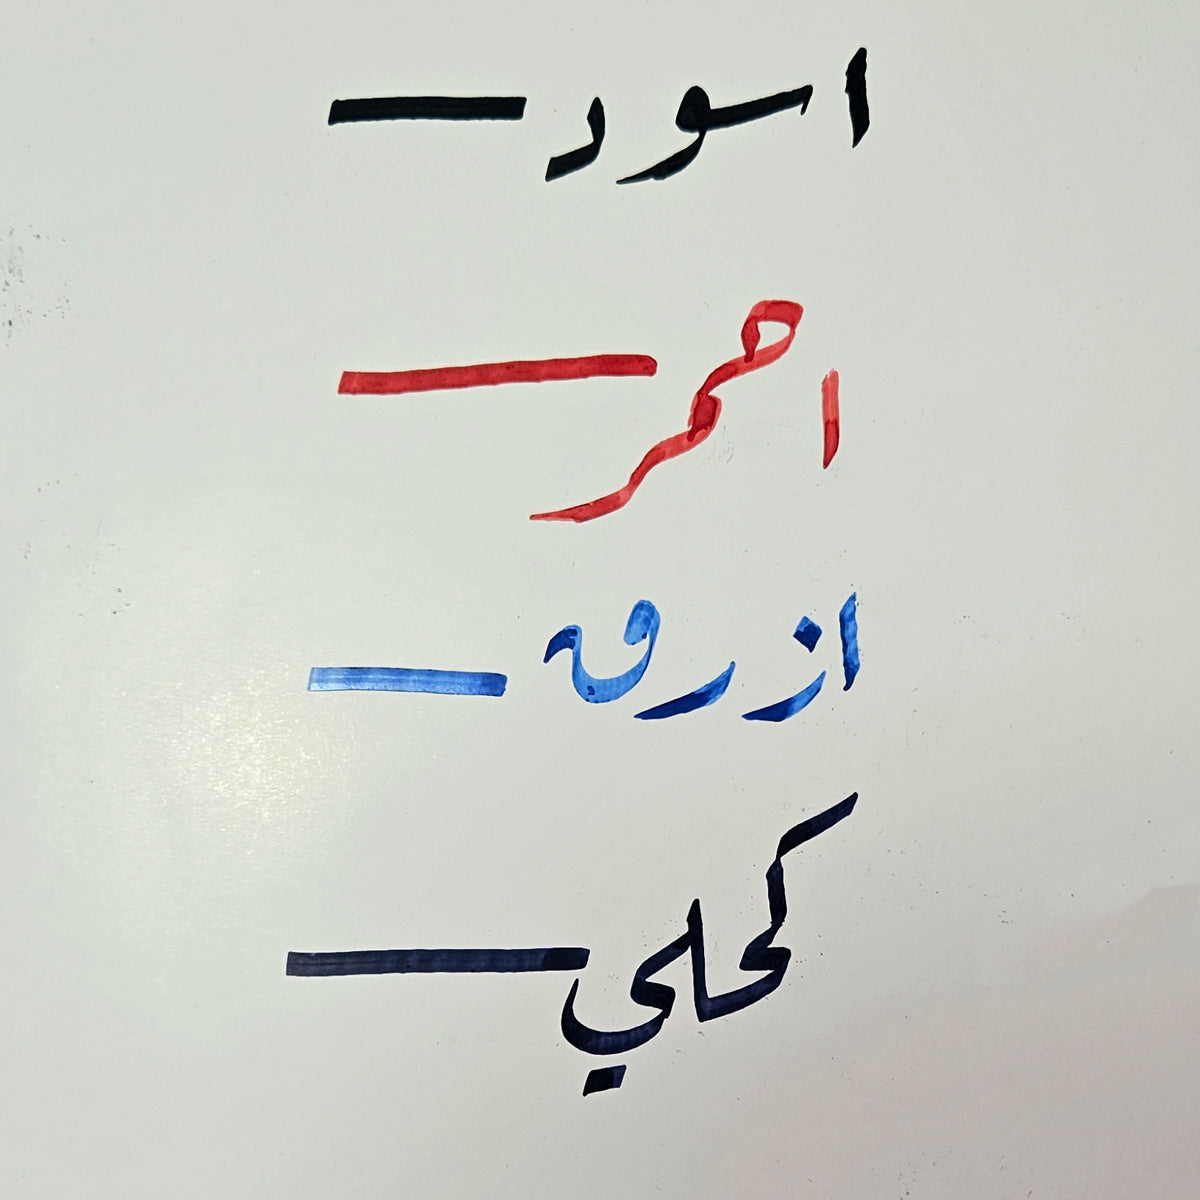 اسود
احمر
ازرق
كحلي